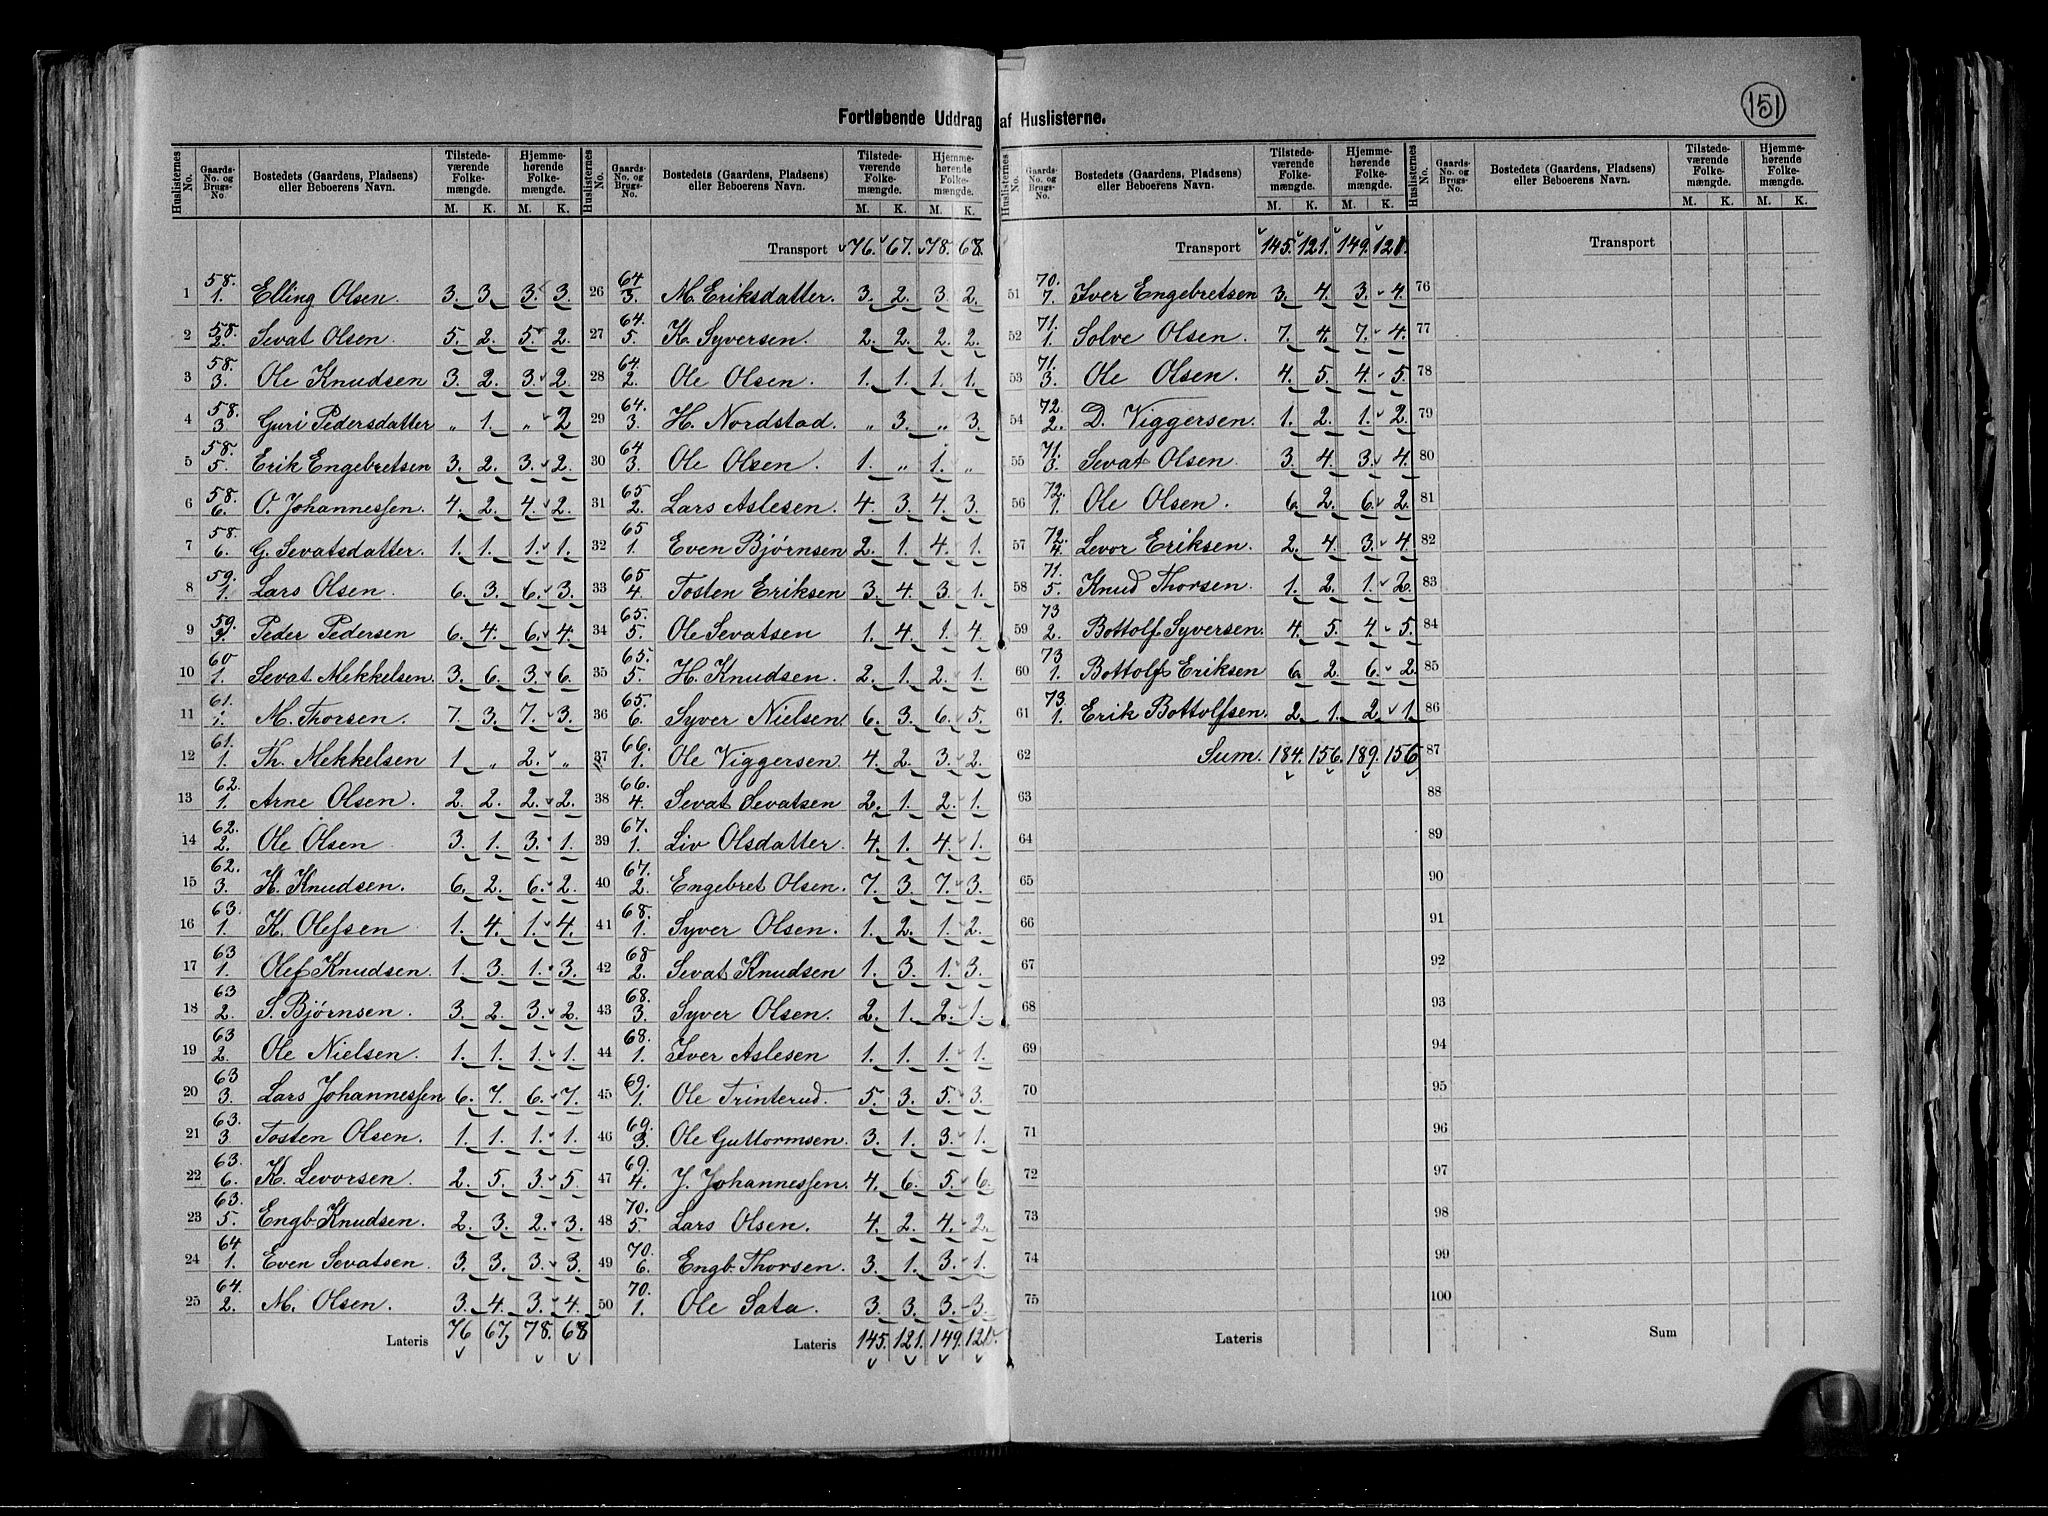 151
Fortløbende Uddrag af Huslisterne.
Huslisternes No. | Gaards-No. og Brugs-No. | Bostedets (Gaardens, Pladsens) eller Beboerens Navn. | Tilstedeværende Folkemængde. M. K. | Hjemmehørende Folkemængde. M. K.
1 58. 1. Elling Olsen 3. 3. 3. 3.
2 58. 2. Sevat Olsen 5. 2. 5. 2.
3 58. 3. Ole Knudsen 3. 2. 3. 2.
4 58. 3. Guri Pedersdatter „ 1. „ 2
5 58. 5. Erik Engebretsen 3. 2. 3. 2.
6 58. 6. O. Johannessen. 4. 2. 4. 2.
7 58. 6. G. Sevatsdatter. 1. 1. 1. 1.
8 59. 1. Lars Olsen. 6. 3. 6. 3.
9 59. 2. Peder Pedersen 6. 4. 6. 4.
10 60 1. Sevat Mekkelsen. 3. 6. 3. 6.
11 61. 1. M. Thorsen. 7. 3. 7. 3.
12 61. 1. Th. Mekkelsen 1. „ 2. „
13 62. 1. Arne Olsen. 2. 2. 2. 2.
14 62. 2. Ole Olsen 3. 1. 3. 1.
15 62. 3. K. Knudsen. 6. 2. 6. 2.
16 63. 1. K. Olefsen 1. 4. 1. 4.
17 63 1. Olef Knudsen. 1. 3. 1. 3.
18 63 2. S. Bjørnsen. 3. 2. 3. 2.
19 63 2. Ole Nielsen. 1. 1. 1. 1.
20 63 3. Lars Johannessen 6. 7. 6. 7.
21 63. 3. Tosten Olsen. 1. 1. 1. 1.
22 63. 6. K. Levorsen. 2. 5. 3. 5.
23 63. 5. Engb. Knudsen. 2. 3. 2. 3.
24 64 1. Even Sevatsen. 3. 3. 3. 3.
25 64. 2. M. Olsen. 3. 4. 3. 4.
Lateris 76 67, 78. 68
Huslisternes No. | Gaards-No. og Brugs-No. | Bostedets (Gaardens, Pladsens) eller Beboerens Navn. | Tilstedeværende Folkemængde. M. K. | Hjemmehørende Folkemængde. M. K.
Transport 76. 67. 78. 68.
26 64 3. M. Eriksdatter. 3. 2. 3. 2.
27 64. 5. K. Syversen. 2. 2. 2. 2.
28 64. 2. Ole Olsen. 1. 1. 1. 1.
29 64. 3. H. Nordstad. „ 3. „ 3.
30 64 3. Ole Olsen. 1. „ 1. „
31 65 2. Lars Aslesen. 4. 3. 4. 3.
32 65 1. Even Bjørnsen 2. 1. 4. 1.
33 65 4. Tosten Eriksen 3. 4. 3. 1.
34 65. 5. Ole Sevatsen 1. 4. 1. 4.
35 65. 5. H. Knudsen. 2. 1. 2. 1.
36 65. 6. Syver Nielsen. 6. 3. 6. 5.
37 66. 1. Ole Viggersen. 4. 2. 3. 2.
38 66. 4. Sevat Sevatsen 2. 1. 2. 1.
39 67. 1. Liv Olsdatter. 4. 1. 4. 1.
40 67. 2. Engebret Olsen. 7. 3. 7. 3.
41 68. 1. Syver Olsen. 1. 2. 1. 2.
42 68 2. Sevat Knudsen 1. 3. 1. 3.
43 68. 3. Syver Olsen. 2. 1. 2. 1.
44 68. 1. Iver Aslesen 1. 1. 1. 1.
45 69. 1. Ole Trinterud. 5. 3. 5. 3.
46 69. 3. Ole Guttormsen. 3. 1. 3. 1.
47 69. 4. J. Johannessen. 4. 6. 5. 6.
48 70. 5. Lars Olsen. 4. 2. 4. 2.
49 70. 6. Engb. Thorsen. 3. 1. 3. 1.
50 70. 1. Ole Sata. 3. 3. 3. 3.
Lateris 145. 121. 149.
Huslisternes No. | Gaards-No. og Brugs-No. | Bostedets (Gaardens, Pladsens) eller Beboerens Navn. | Tilstedeværende Folkemængde. M. K. | Hjemmehørende Folkemængde. M. K.
Transport 145. 121. 149.
51 70. 7. Iver Engebretsen 3. 4. 3. 4.
52 71. 1. Solve Olsen. 7. 4. 7. 4.
53 71. 3. Ole Olsen. 4. 5. 4. 5.
54 72. 2. D. Viggersen. 1. 2. 1. 2.
55 71. 3. Sevat Olsen. 3. 4. 3. 4.
56 72. 1. Ole Olsen. 6. 2. 6. 2.
57 72. 4. Levor Eriksen. 2. 4. 3. 4.
58 71. 5. Knud Thorsen. 1. 2. 1. 2.
59 73 2. Bottolf Syversen. 4. 5. 4. 5.
60 73 1. Bottolf Eriksen 6. 2. 6. 2.
61 73. 1. Erik Bottolfsen. 2. 1. 2. 1.
62 Sum. 184. 156. 189. 156
63
64
65
66
67
68
69
70
71
72
73
74
75
Lateris
Huslisternes No. | Gaards-No. og Brugs-No. | Bostedets (Gaardens, Pladsens) eller Beboerens Navn. | Tilstedeværende Folkemængde. M. K. | Hjemmehørende Folkemængde. M. K.
Transport
76
77
78
79
80
81
82
83
84
85
86
87
88
89
90
91
92
93
94
95
96
97
98
99
100
Sum